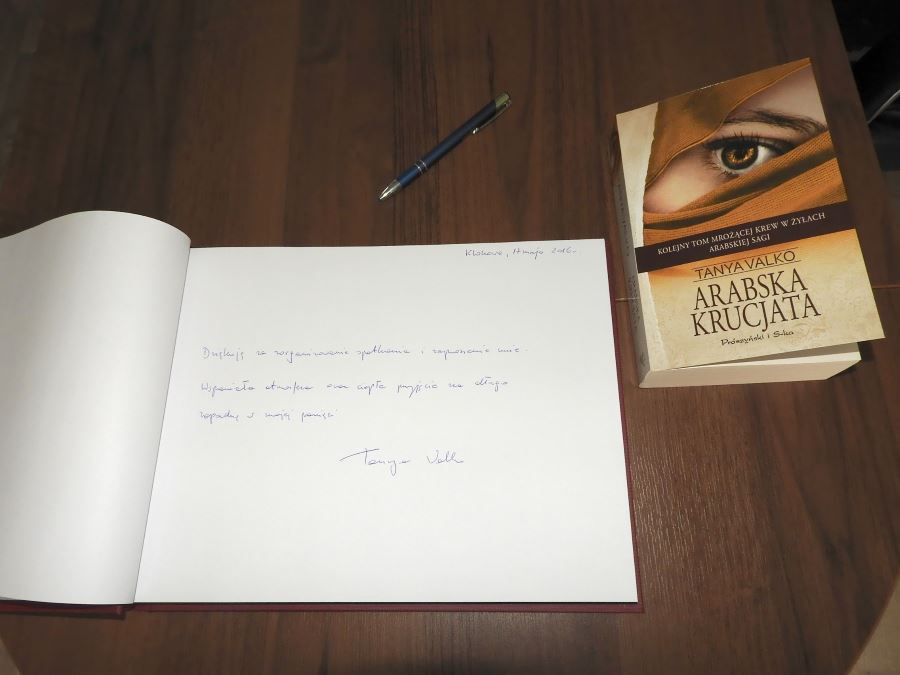 Klonowa, 17 maja 2016r.
Dziękuję za zorganizowanie spotkania i zaproszenie mnie.
Wspaniała atmosfera oraz ciepłe przyjęcie na długo
zapadną w mojej pamięci
Tanya Valko
KOLEJNY TOM MROŻĄCEJ KREW W ŻYŁACH
ARABSKIEJ SAGI
TANYA VALKO
ARABSKA
KRUCJATA
Prószyński i S-ka